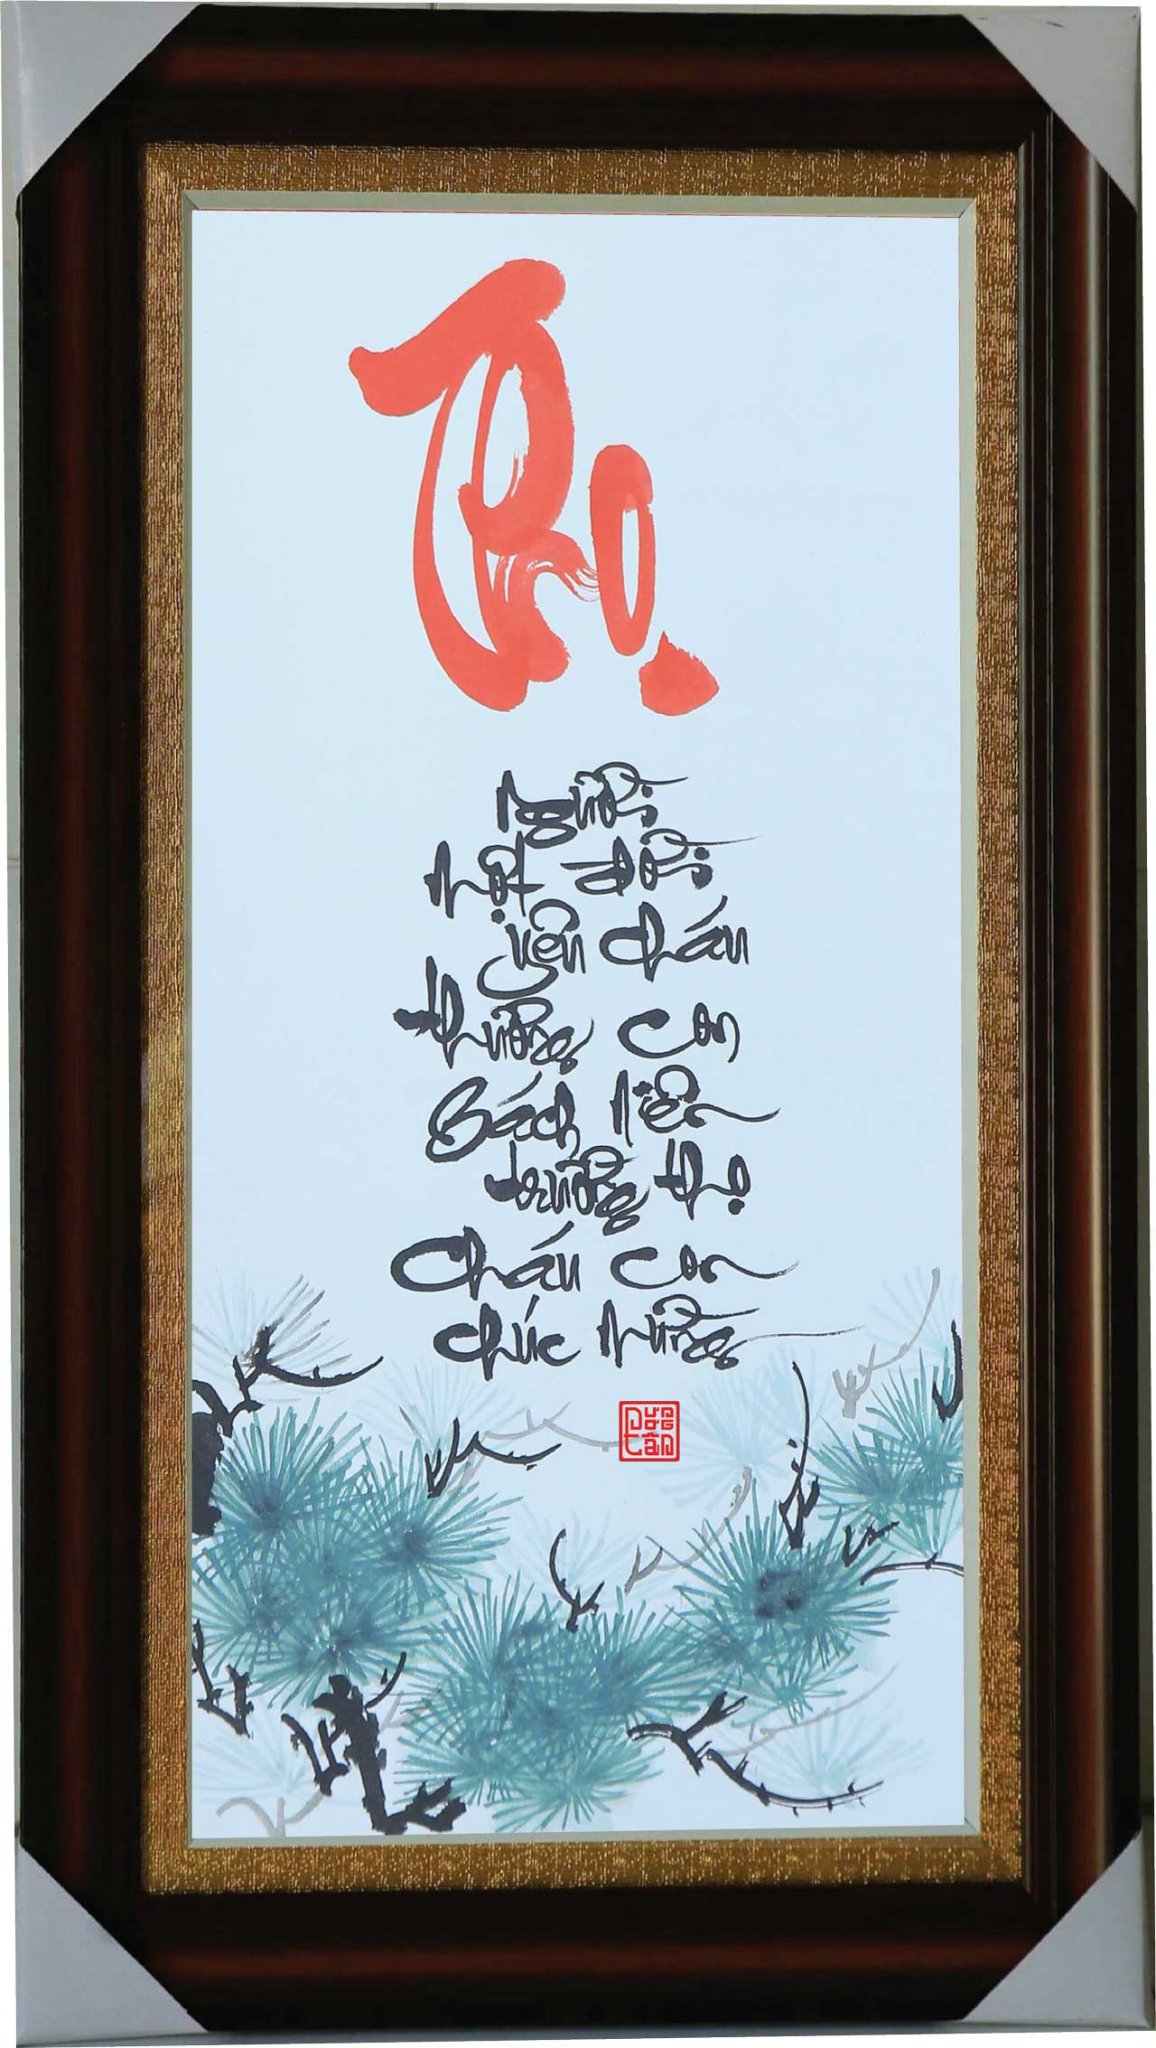 Thọ
Người
một đời
yên cháu
thương con
Bách niên
trường thọ
Cháu con
chúc mừng
Dương
tân